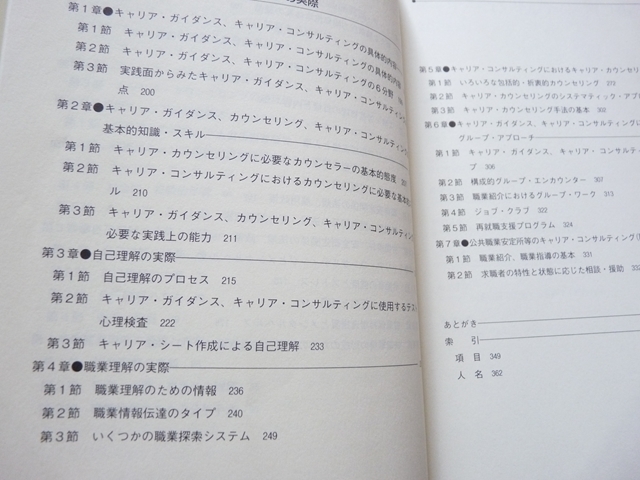 の実際
第1章●キャリア・ガイダンス、キャリア・コンサルティングの具体的内容
第1節 キャリア・ガイダンス、キャリア・コンサルティングの具体的内容
第2節 キャリア・ガイダンス、キャリア・コンサルティングの6分野
第3節 実践面からみたキャリア・ガイダンス、キャリア・コンサルティン
点 200
第2章●キャリア・ガイダンス、カウンセリング、キャリア・コンサルティン
基本的知識・スキル
第1節 キャリア・カウンセリングに必要なカウンセラーの基本的態度
第2節 キャリア・コンサルティングにおけるカウンセリングに必要な基本的
ル 210
第3節 キャリア・ガイダンス、カウンセリング、キャリア・コンサルティン
必要な実践上の能力 211
第3章●自己理解の実際
第1節 自己理解のプロセス 215
第2節 キャリア・ガイダンス、キャリア・コンサルティングに使用するテス
心理検査 222
第3節 キャリア・シート作成による自己理解 233
第4章●職業理解の実際
第1節 職業理解のための情報 236
第2節 職業情報伝達のタイプ 240
第3節 いくつかの職業探索システム 249
第5章●キャリア・コンサルティングにおけるキャリア・カウンセリ
第1節 いろいろな包括的・折衷的カウンセリング
第2節 キャリア・カウンセリングのシステマティック・アプ
第3節 キャリア・カウンセリング手法の基本 302
第6章●キャリア・ガイダンス、キャリア・コンサルティングに
グループ・アプローチ
第1節 キャリア・ガイダンス、キャリア・コンサルティ
プ 306
第2節 構成的グループ・エンカウンター 307
第3節 職業紹介におけるグループ・ワーク 313
第4節 ジョブ・クラブ 322
第5節 再就職支援プログラム 324
第7章●公共職業安定所等のキャリア・コンサルティング
第1節 職業紹介、職業指導の基本 331
第2節 求職者の特性と状態に応じた相談・援助 332
あとがき
索 引
項 目 349
人 名 362